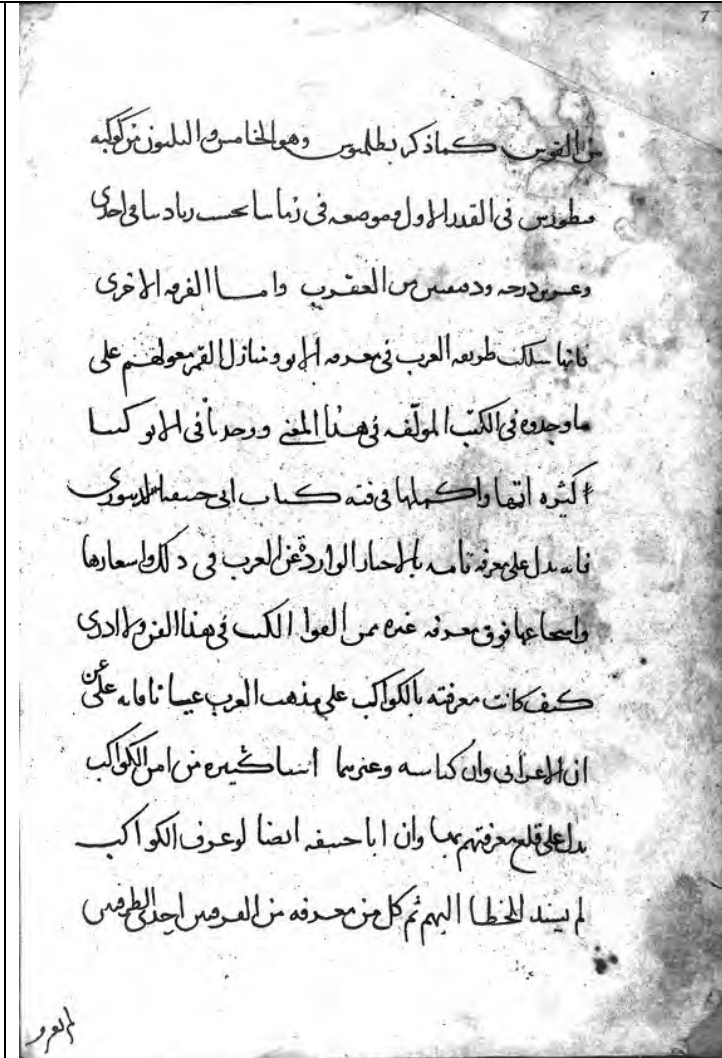 7
من القوس كما ذكر بطلميوس وهو الخامس والثلثون من كوكبه
قنطورس في القدر الاول وموضعه في زماننا بحسب زيادتنا في احدى
وعشرين درجه ودقيقتين من العقرب واما الفرقه الاخرى
فانها سلكت طريقه العرب في معرفه الانوا ومنازل القمر ومعولهم على
ما وجدوه في الكتب المولّفه في هذا المعنى ووجدنا في الانوا كتبا
كثيره اتمها واكملها في فنه كتاب ابي حنيفه الدينوري
فانه يدل على معرفه تامه بالاخبار الوارده عن العرب في ذلك واشعارها
واسجاعها فوق معرفه غيره ممن الفوا الكتب في هذا الفن ولا ادري
كيف كانت معرفته بالكواكب على مذهب العرب عيانا فانه يحكى عن
ابن الاعرابي وابن كناسه وغيرهما اشيا كثيره من امر الكواكب
يدل على قله معرفتهم بها وان ابا حنيفه ايضا لو عرف الكواكب
لم يسند الخطا اليهم ثم كل من معرفه من الفرقتين احدى الطريقين
لم يعرف